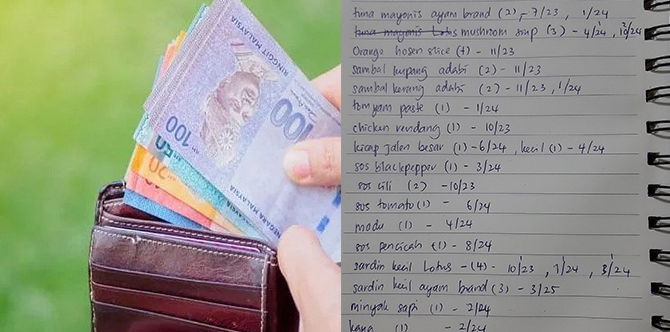 RINGGIT MALAYSIA
100
100
50
20
NEGARA MALAYSIA
tuna mayonis ayam brand (2) - 7/23, 1/24
tuna mayonis Lotus mushroom soup (3) - 4/24, 10/24
Orange hosen slice (1) - 11/23
sambal kupang adabi (2) - 11/23
sambal kerang adabi (2) - 11/23, 1/24
tomyam paste (1) - 1/24
chicken rendang (1) - 10/23
kicap jalen besar (1) - 6/24, kecil (1) - 4/24
sos blackpepper (1) - 3/24
sos cili (2) - 10/23
sos tomato (1) - 6/24
madu (1) - 4/24
sos pencicah (1) - 8/24
sardin kecil Lotus - (4) - 10/23, 1/24, 3/24
sardin kecil ayam brand (3) - 3/25
minyak sapi (1) - 2/24
(1) - 2/24